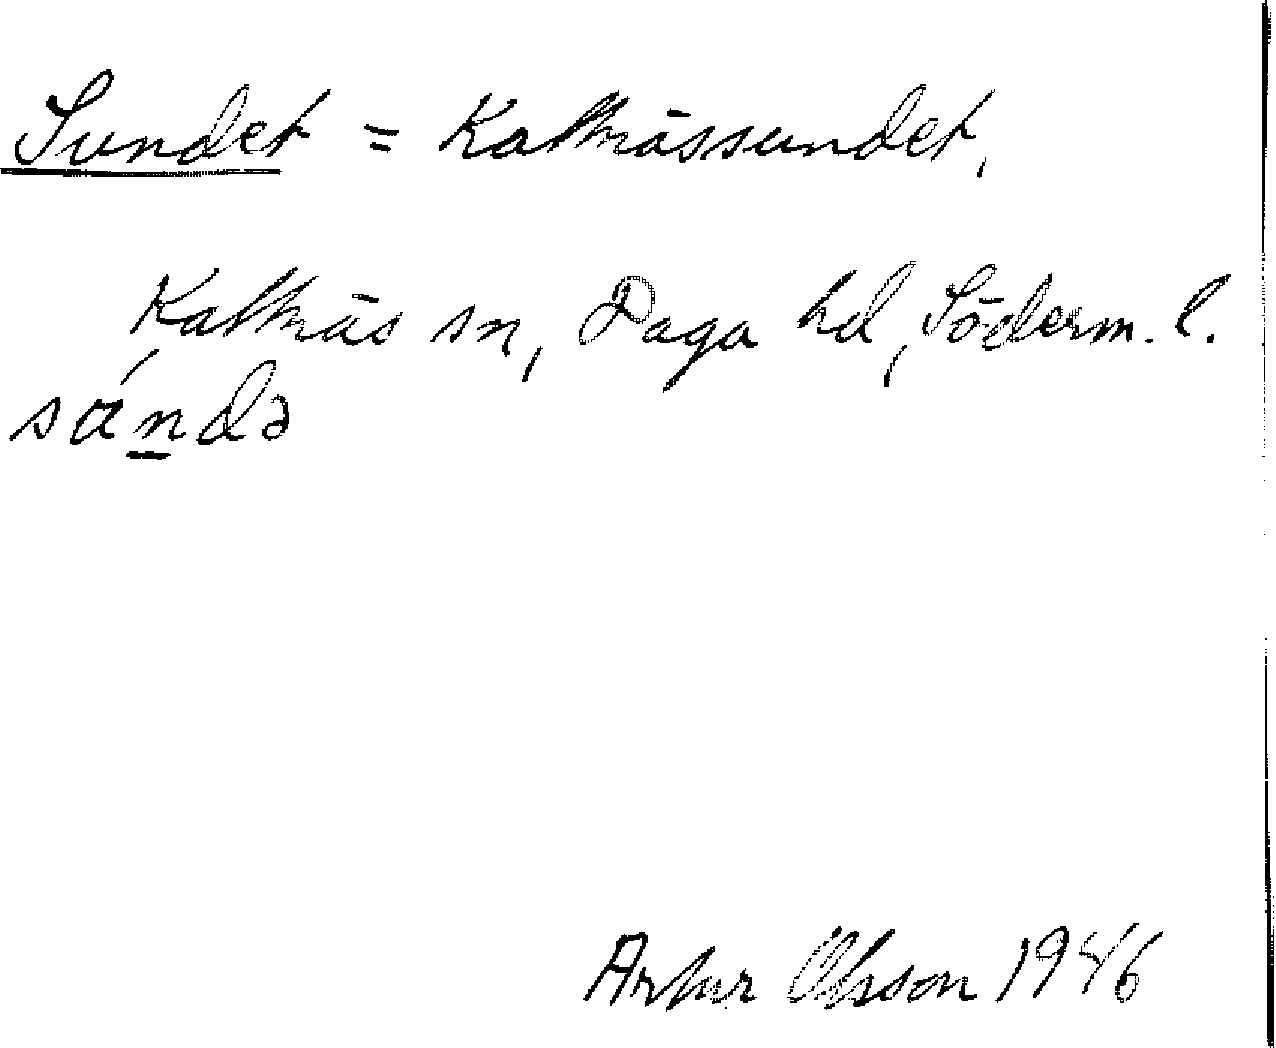 Sundet = Kattnässundet,
Kattnäs sn, Daga hd, Söderm. l.
sándə
Artur Ohsson 1946